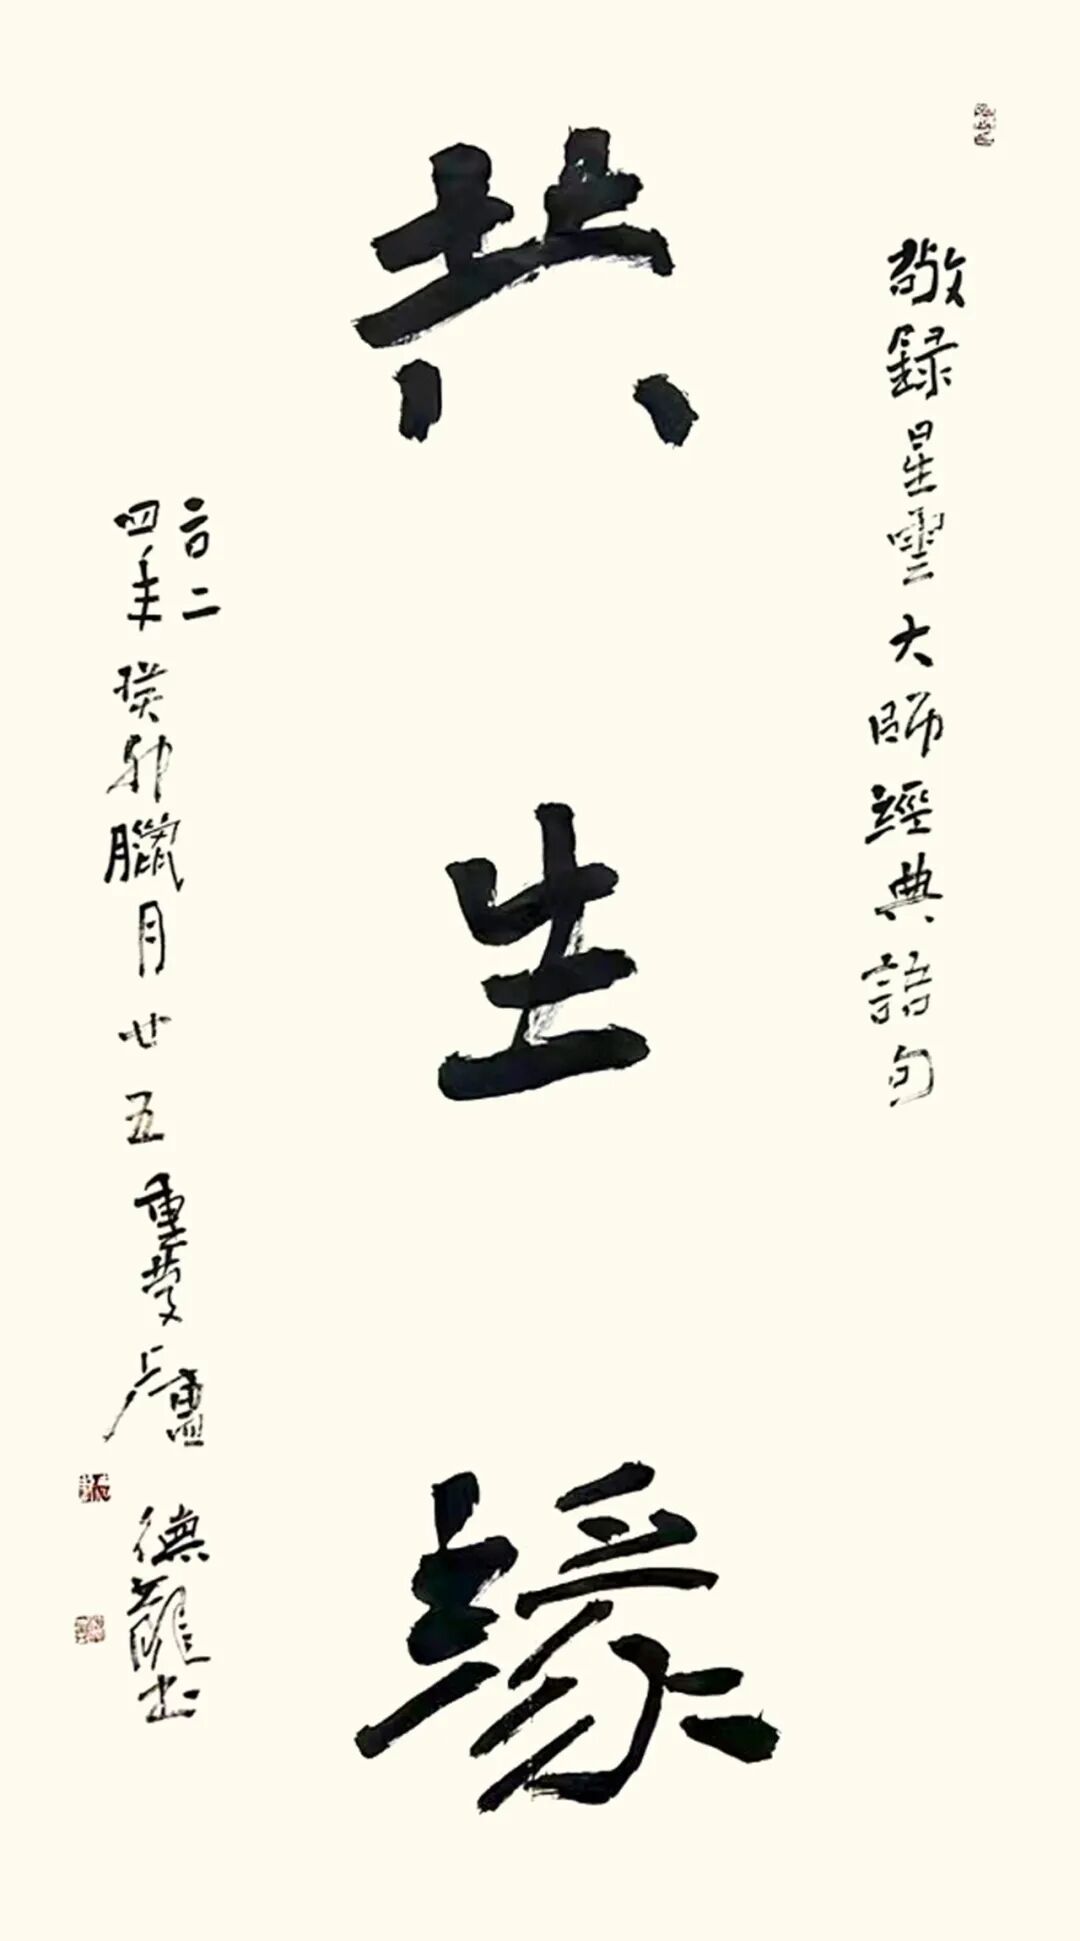 敬録星雲大師經典語句
共生緣
二〇二
四年癸卯臘月廿五重慶廬德龍书